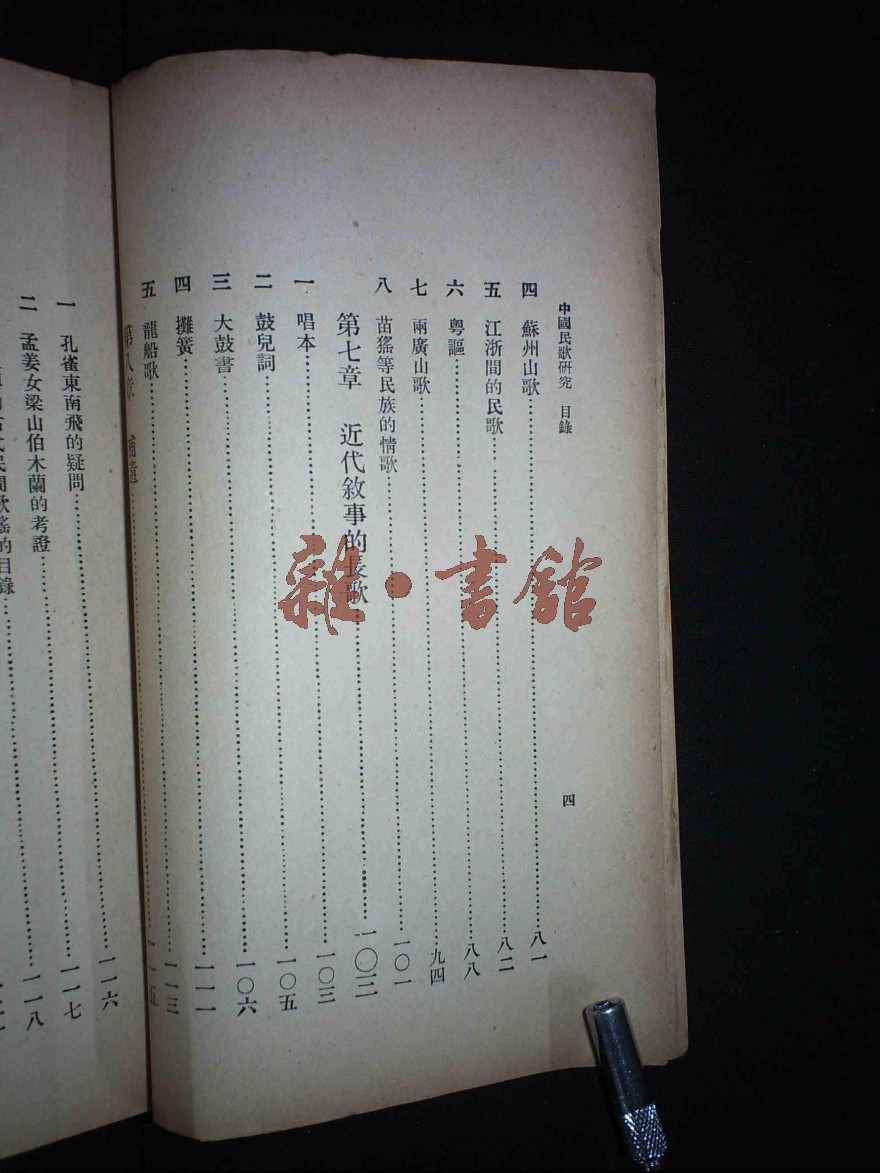 中國民歌研究 目錄
四
四 蘇州山歌……八一
五 江浙間的民歌……八二
六 粤謳……八八
七 兩廣山歌……九四
八 苗猺等民族的情歌……一〇一
第七章 近代敘事的長歌……一〇三
一 唱本……一〇三
二 鼓兒詞……一〇五
三 大鼓書……一〇六
四 攤簧……一一一
五 龍船歌……一一三
第八章 補遺……一一五
一 孔雀東南飛的疑問……一一六
二 孟姜女梁山伯木蘭的考證……一一七
民間歌謠的目錄……一一八
雜·書館